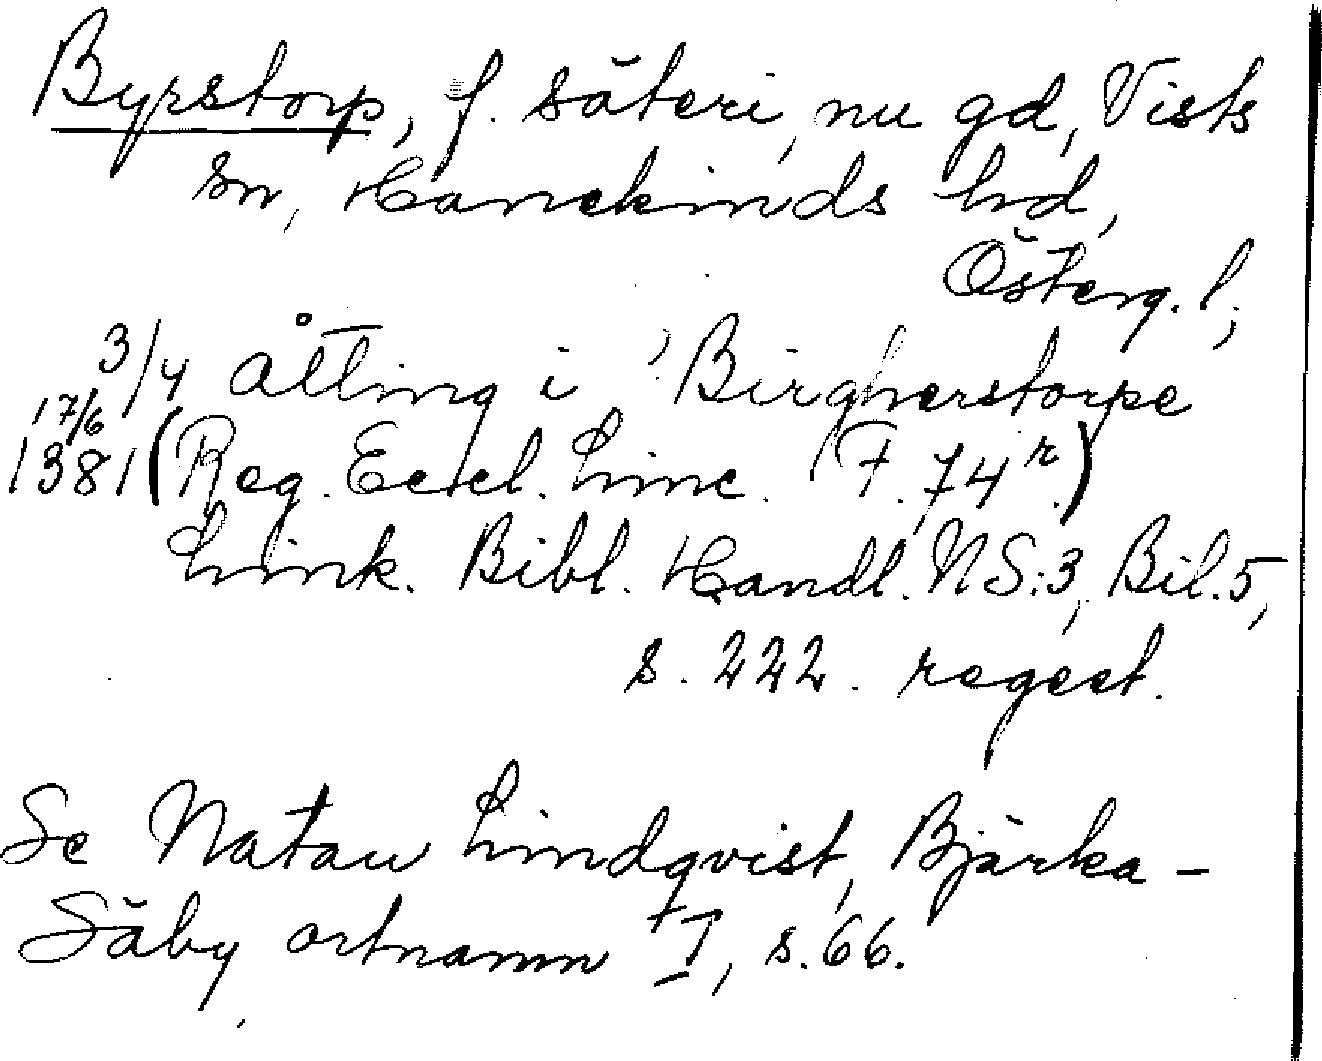 Byrstorp, f. säteri, nu gd, Vists
sn, Hanekinds hd,
Österg. l;
3/4 åtting i 'Birgherstorpe
17/6
1381 (Reg. Eccl. Linc. F. 74 r.)
Link. Bibl. Handl. NS:3, Bil. 5,
s. 222. regest.
Se Natan Lindqvist, Bjärka-
Säby ortnamn I, s. 66.